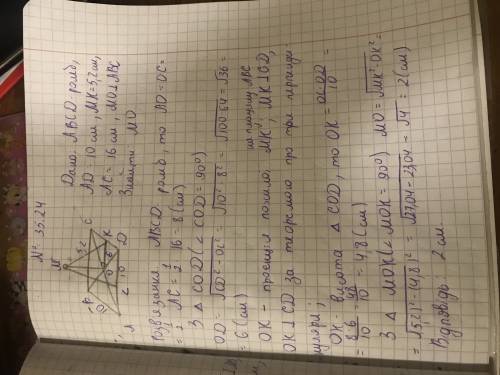 № 35.24
M
5,2
B
C
K
O
8
6
A
D
10
Дано: ABCD - ромб,
AD = 10 см, MK = 5,2 см,
AC = 16 см, MO ⊥ ABC
Знайти MO
Розв'язання ABCD ромб, то AO = OC =
= 1/2 AC = 1/2 · 16 = 8 (см)
З △ COD (∠ COD = 90°)
OD = √CD² - OC² = √10² - 8² = √100 - 64 = √36 =
= 6 (см)
OK - проекція похилої MK на площину ABC, MK ⊥ CD,
OK ⊥ CD за теоремою про три перпенди
куляри;
OK - висота △ COD, то OK = OC·OD/10 =
= 8·6/10 = 48/10 = 4,8 (см)
З △ MOK (∠ MOK = 90°) MO = √MK² - OK² =
= √(5,2)² - (4,8)² = √27,04 - 23,04 = √4 = 2 (см)
Відповідь: 2 см.